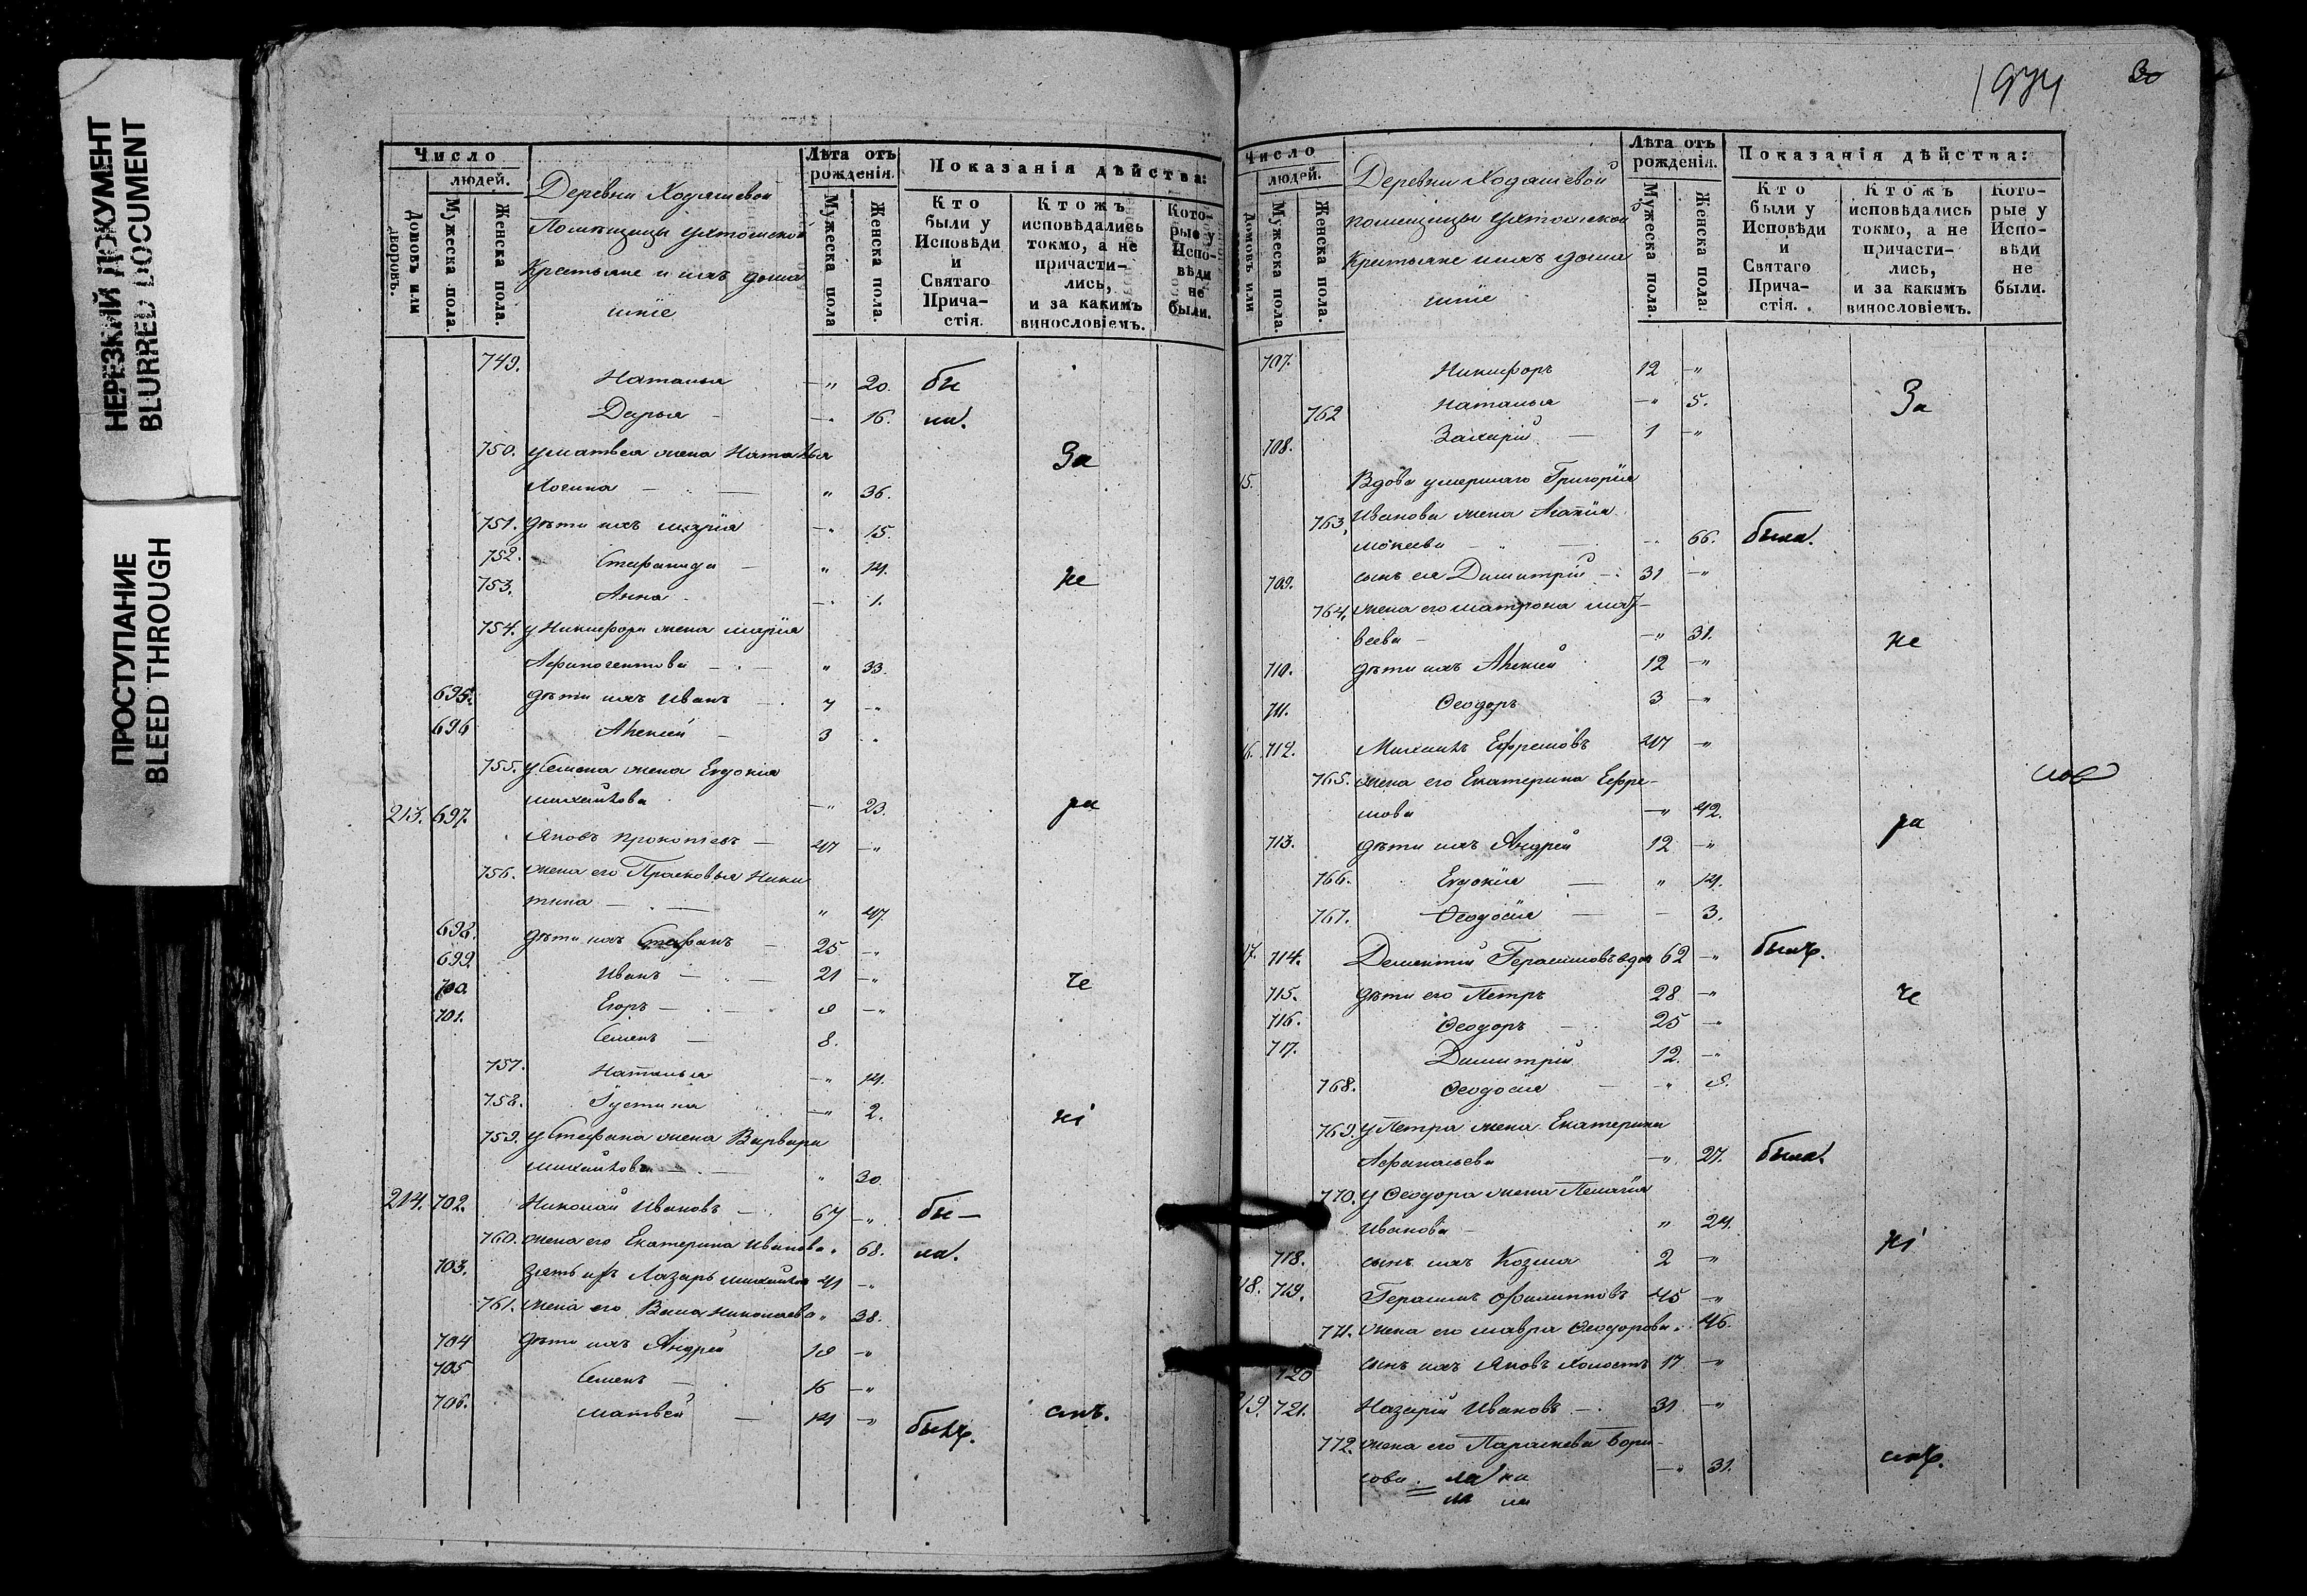 НЕРЕЗКИЙ ДОКУМЕНТ
BLURRED DOCUMENT
ПРОСТУПАНИЕ
BLEED THROUGH
Число
людей.
Домовъ или дворовъ.
Мужеска пола.
Женска пола.
Деревни Ходяшевой
Помѣщицы Ухтомской
Крестьяне и ихъ дома
шніе
Лѣта отъ рожденія.
Мужеска пола
Женска пола.
Показанія дѣйства:
Кто были у Исповѣди и Святаго Прича-стія.
Ктожъ исповѣдались токмо, а не причасти-лись, и за какимъ винословіемъ.
Кото-рые у Испо-вѣди не были.
749. Наталья —„ 20. бы
Дарья — 16. ла.
750. у матвея жена Наталья За
Логина — „ 36.
751. дѣти ихъ марія —„ 15.
752. Стефанида — „ 14.
753. Анна — 1. не
754. у Никифора жена марія
Афиногентова — „ 33.
695. дѣти ихъ Иванъ — 7 —„
696 Алексѣй — 3 „
755. у Семена жена Евдокія
михайлова —„ 23. ра
213. 697. Яковъ Прокопьевъ — 47 —„
756. жена его Прасковья Ники
тина — „ 47.
698. дѣти ихъ Стефанъ — 25 —„
699. Иванъ — 21 —„ че
700. Егоръ — 9 —„
701. Семенъ — 8.
757. Наталья —„ 14.
758. Густина —„ 2. ні
759. у Стефана жена Варвара
михайлова — „ 30.
214. 702. Николай Ивановъ — 67 —„ бы—
760. жена его Екатерина Иванова „ 68. ла.
703. зять ихъ Лазарь михайлов 41 —„
761. жена его Васса Николаева „ 38.
704 дѣти ихъ Андрей 19 —„
705 Семенъ — 16 —„
706. матвей — 14 —„ былъ. емъ.
1974 30
Число
людей.
Домовъ или
Мужеска пола.
Женска пола.
Деревни Ходяшевой
помещицы Ухтомской
Крестьяне и ихъ дома
шніе
Лѣта отъ рожденія.
Мужеска пола.
Женска пола.
Показанія дѣйства:
Кто были у Исповѣди и Святаго Прича-стія.
Ктожъ исповѣдались токмо, а не причасти-лись, и за какимъ винословіемъ.
Кото-рые у Испо-вѣди не были.
707. Никифоръ 12 —„
762 Наталья —„ 5. За
708. Захарій — 1 —„
15. Вдова умершаго Григорія
763. Иванова жена Агапія
мокеева — 66. была.
709. сынъ ея Димитрій — 31 —„
764. жена его матрона мат-
веева — „ 31. не
710. дѣти ихъ Алексей 12 —„
711. Ѳеодоръ 3 —„
16. 712. Михаилъ Ефремовъ 47 —„
765. жена его Екатерина Ефре-
мова —„ 42. ра
713. дѣти ихъ Андрей 12 —„
766. Евдокія — „ 14.
767. Ѳеодосія — 3.
17. 714. Дементій Герасимовъ вдов 62 —„ былъ.
715. дѣти его Петръ 28 —„ че
716. Ѳеодоръ — 25 —„
717. Димитрій 12. —„
768. Ѳеодосія — „ 9.
769. у Петра жена Екатерина
Афанасьева —„ 27. была.
770. у Ѳеодора жена Пелагія
Иванова — „ 24. ні
718. сынъ ихъ Козма 2 —„
18. 719. Герасимъ Филипповъ 45 —„
771. жена его мавра Ѳеодорова „ 46.
720 сынъ ихъ Яковъ холостъ 17 —„
219. 721. Назарій Ивановъ — 31 —„
772. жена его Параскева Бори-
сова —„ 31. емъ.